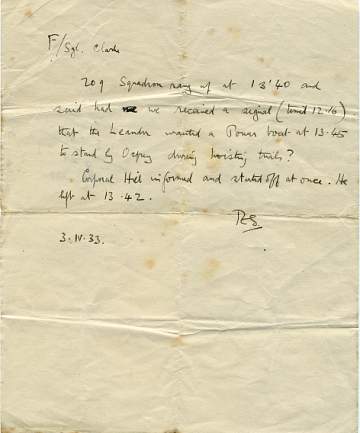 F/Sgt. Clarke
209 Squadron rang up at 13'40 and
said had we received a signal (timed 12.16)
that the Leander wanted a Power boat at 13.45
to stand by Osprey during hoisting trials?
Corporal Hill informed and started off at once. He
left at 13.42.
3.IV.33.